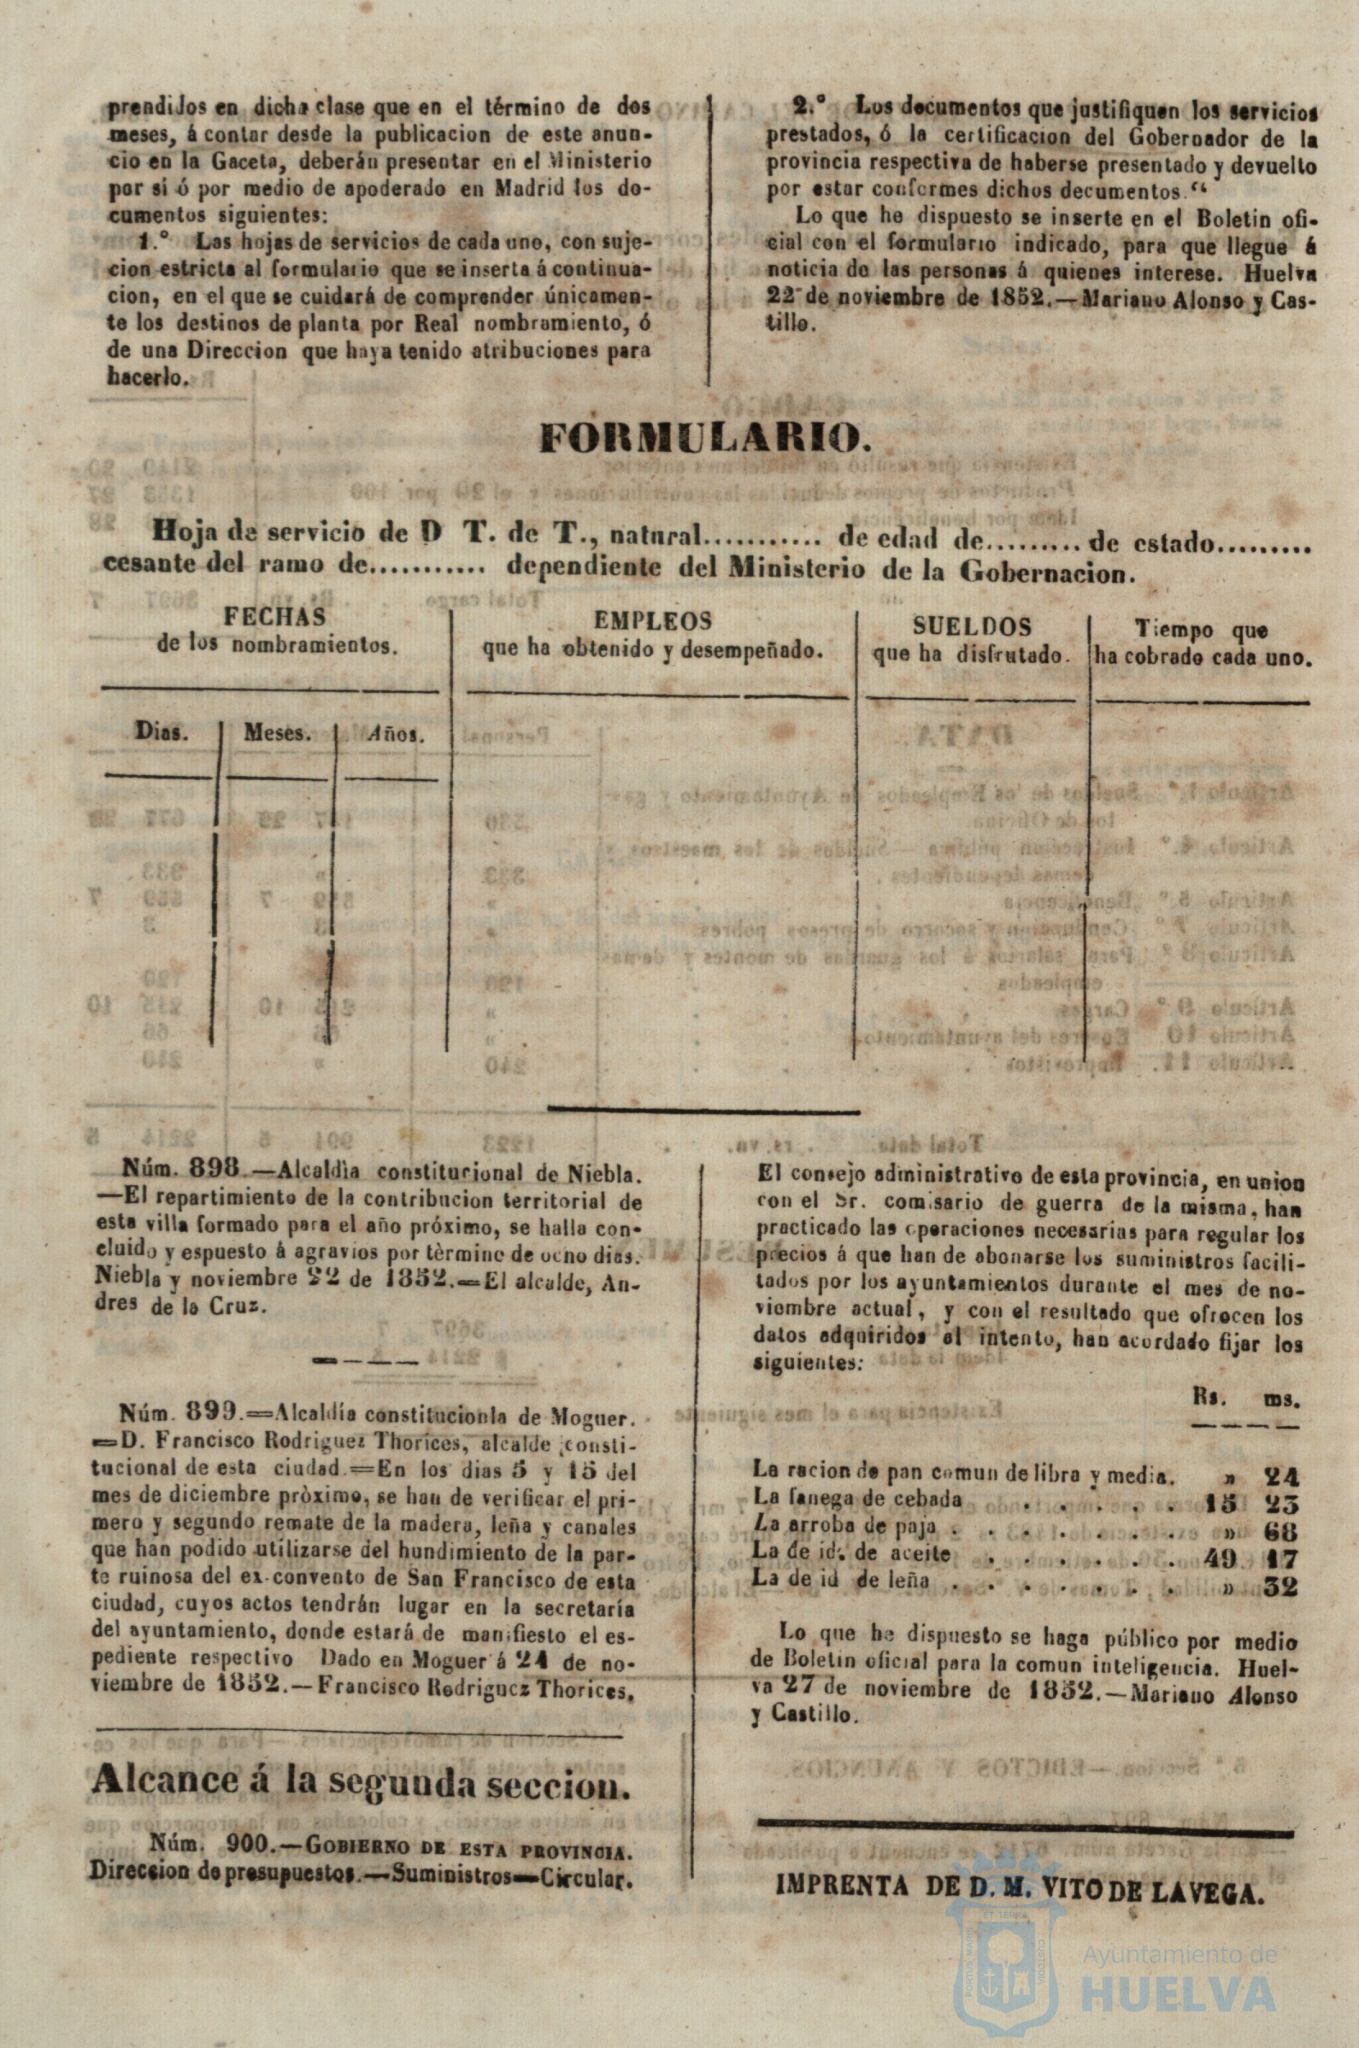 prendidos en dicha clase que en el término de dos
meses, á contar desde la publicacion de este anun-
cio en la Gaceta, deberán presentar en el Ministerio
por sí ó por medio de apoderado en Madrid los do-
cumentos siguientes:
1.° Las hojas de servicios de cada uno, con suje-
cion estricta al formulario que se inserta á continua-
cion, en el que se cuidará de comprender únicamen-
te los destinos de planta por Real nombramiento, ó
de una Direccion que haya tenido atribuciones para
hacerlo.
2.° Los documentos que justifiquen los servicios
prestados, ó la certificacion del Gobernador de la
provincia respectiva de haberse presentado y devuelto
por estar conformes dichos documentos.“
Lo que he dispuesto se inserte en el Boletin ofi-
cial con el formulario indicado, para que llegue á
noticia de las personas á quienes interese. Huelva
22 de noviembre de 1852.—Mariano Alonso y Cas-
tillo.
FORMULARIO.
Hoja de servicio de D T. de T., natural........... de edad de......... de estado.........
cesante del ramo de........... dependiente del Ministerio de la Gobernacion.
FECHAS
de los nombramientos.
EMPLEOS
que ha obtenido y desempeñado.
SUELDOS
que ha disfrutado.
Tiempo que
ha cobrado cada uno.
Dias. Meses. Años.
Núm. 898.—Alcaldìa constitucional de Niebla.
—El repartimiento de la contribucion territorial de
esta villa formado para el año próximo, se halla con-
cluido y espuesto á agravios por tèrmino de ocho dias.
Niebla y noviembre 22 de 1852.=El alcalde, An-
dres de la Cruz.
Núm. 899.=Alcaldía constitucionla de Moguer.
=D. Francisco Rodriguez Thorices, alcalde consti-
tucional de esta ciudad.=En los dias 5 y 15 del
mes de diciembre pròximo, se han de verificar el pri-
mero y segundo remate de la madera, leña y canales
que han podido utilizarse del hundimiento de la par-
te ruinosa del ex-convento de San Francisco de esta
ciudad, cuyos actos tendrán lugar en la secretaría
del ayuntamiento, donde estará de manifiesto el es-
pediente respectivo Dado en Moguer á 24 de no-
viembre de 1852.—Francisco Rodriguez Thorices.
Alcance á la segunda seccion.
Núm. 900.—GOBIERNO DE ESTA PROVINCIA.
Direccion de presupuestos.—Suministros—Circular.
El consejo administrativo de esta provincia, en union
con el Sr. comisario de guerra de la misma, han
practicado las operaciones necesarias para regular los
precios á que han de abonarse los suministros facili-
tados por los ayuntamientos durante el mes de no-
viembre actual, y con el resultado que ofrecen los
datos adquiridos al intento, han acordado fijar los
siguientes:
Rs. ms.
La racion de pan comun de libra y media. » 24
La fanega de cebada . . . . . 15 23
La arroba de paja . . . . . . . » 68
La de id. de aceite . . . . . 49 17
La de id de leña . . . . . . . » 32
Lo que he dispuesto se haga público por medio
de Boletin oficial para la comun inteligencia. Huel-
va 27 de noviembre de 1852.—Mariano Alonso
y Castillo.
IMPRENTA DE D. M. VITO DE LA VEGA.
Ayuntamiento de
HUELVA